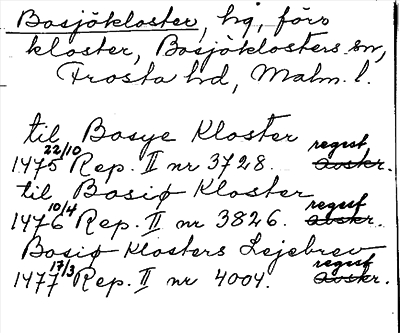 Bosjökloster, hg, förs
kloster, Bosjöklosters sn,
Frosta hd, Malm. l.
til Bosye Kloster
1475 22/10 Rep. II nr 3728. regest avskr.
til Bosiø Kloster
1476 10/4 Rep. II nr 3826. regest avskr.
Bosiø Klosters Lejebrev
1477 17/3 Rep. II nr 4004. regest avskr.